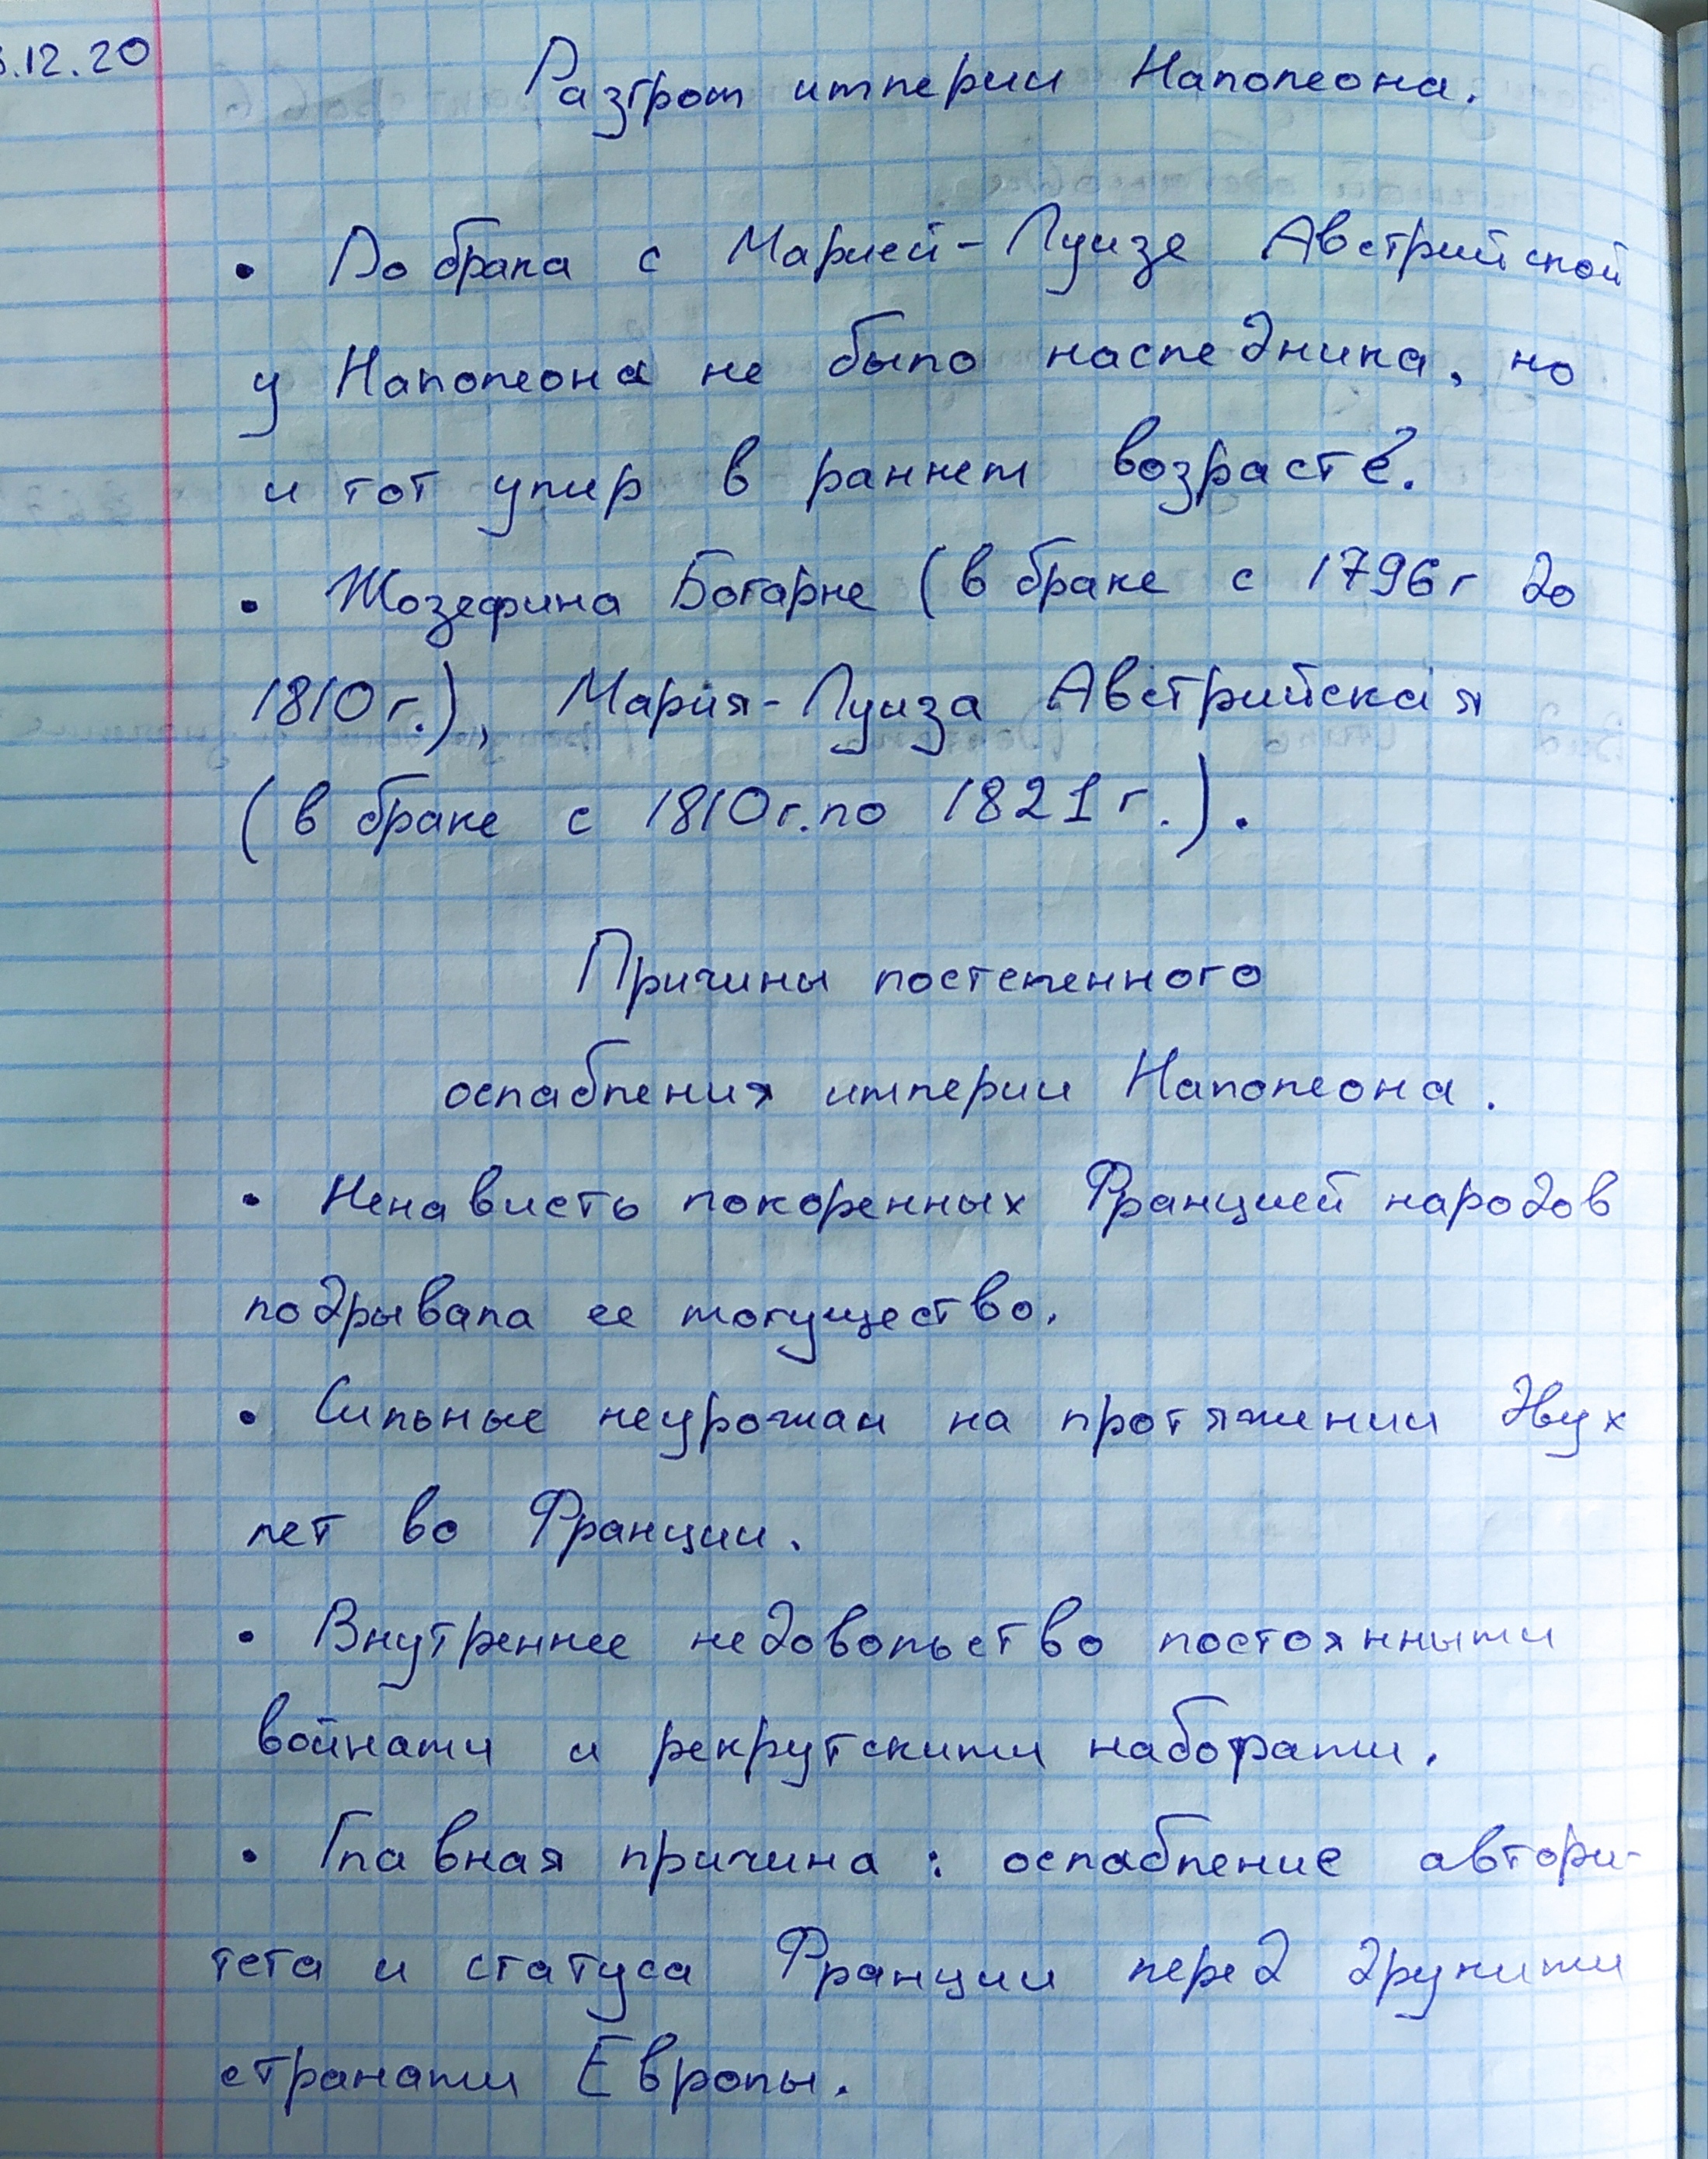 .12.20
Разгром империи Наполеона.
• До брака с Марией-Луизе Австрийской
у Наполеона не было наследника, но
и тот умир в раннем возрасте.
• Жозефина Богарне (в браке с 1796г до
1810г.), Мария-Луиза Австрийская
(в браке с 1810г. по 1821г.).
Причины постепенного
ослабления империи Наполеона.
• Ненависть покоренных Францией народов
подрывала ее могущество.
• Сильные неурожаи на протяжении двух
лет во Франции.
• Внутреннее недовольство постоянными
войнами и рекрутскими наборами.
• Главная причина: ослабление автори-
тета и статуса Франции перед другими
странами Европы.